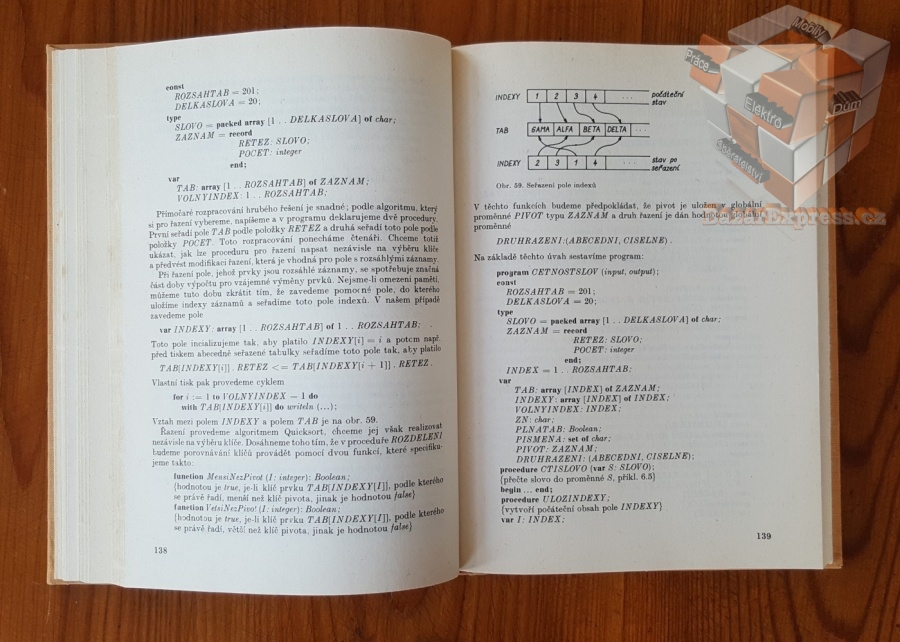 const
ROZSAHTAB = 201;
DELKASLOVA = 20;
type
SLOVO = packed array [1 . . DELKASLOVA] of char;
ZAZNAM = record
RETEZ: SLOVO;
POCET: integer
end;
var
TAB: array [1 . . ROZSAHTAB] of ZAZNAM;
VOLNYINDEX: 1 . . ROZSAHTAB;
Přímočaré rozpracování hrubého řešení je snadné; podle algoritmu, který
si pro řazení vybereme, napíšeme a v programu deklarujeme dvě procedury.
První seřadí pole TAB podle položky RETEZ a druhá seřadí toto pole podle
položky POCET. Toto rozpracování ponecháme čtenáři. Chceme totiž
ukázat, jak lze proceduru pro řazení napsat nezávisle na výběru klíče
a předvést modifikaci řazení, která je vhodná pro pole s rozsáhlými záznamy.
Při řazení pole, jehož prvky jsou rozsáhlé záznamy, se spotřebuje značná
část doby výpočtu pro vzájemné výměny prvků. Nejsme-li omezeni pamětí,
můžeme tuto dobu zkrátit tím, že zavedeme pomocné pole, do kterého
uložíme indexy záznamů a seřadíme toto pole indexů. V našem případě
zavedeme pole
var INDEXY: array [1 . . ROZSAHTAB] of 1 . . ROZSAHTAB;
Toto pole incializujeme tak, aby platilo INDEXY[i] = i a potom např.
před tiskem abecedně seřazené tabulky seřadíme toto pole tak, aby platilo
TAB[INDEXY[i]] . RETEZ <= TAB[INDEXY[i + 1]] . RETEZ .
Vlastní tisk pak provedeme cyklem
for i := 1 to VOLNYINDEX − 1 do
with TAB[INDEXY[i]] do writeln (...);
Vztah mezi polem INDEXY a polem TAB je na obr. 59.
Řazení provedeme algoritmem Quicksort, chceme jej však realizovat
nezávisle na výběru klíče. Dosáhneme toho tím, že v proceduře ROZDELENI
budeme porovnávání klíčů provádět pomocí dvou funkcí, které specifiku-
jeme takto:
function MensiNezPivot (I: integer): Boolean;
{hodnotou je true, je-li klíč prvku TAB[INDEXY[I]], podle kterého
se právě řadí, menší než klíč pivota, jinak je hodnotou false}
function VetsiNezPivot (I: integer): Boolean;
{hodnotou je true, je-li klíč prvku TAB[INDEXY[I]], podle kterého
se právě řadí, větší než klíč pivota, jinak je hodnotou false}
138
INDEXY 1 2 3 4 . . . počáteční stav
TAB GAMA ALFA BETA DELTA . . .
INDEXY 2 3 1 4 . . . stav po seřazení
Obr. 59. Seřazení pole indexů
V těchto funkcích budeme předpokládat, že pivot je uložen v globální
proměnné PIVOT typu ZAZNAM a druh řazení je dán hodnotou globální
proměnné
DRUHRAZENI:(ABECEDNI, CISELNE) .
Na základě těchto úvah sestavíme program:
program CETNOSTSLOV (input, output);
const
ROZSAHTAB = 201;
DELKASLOVA = 20;
type
SLOVO = packed array [1 . . DELKASLOVA] of char;
ZAZNAM = record
RETEZ: SLOVO;
POCET: integer
end;
INDEX = 1 . . ROZSAHTAB;
var
TAB: array [INDEX] of ZAZNAM;
INDEXY: array [INDEX] of INDEX;
VOLNYINDEX: INDEX;
ZN: char;
PLNATAB: Boolean;
PISMENA: set of char;
PIVOT: ZAZNAM;
DRUHRAZENI: (ABECEDNI, CISELNE);
procedure CTISLOVO (var S: SLOVO);
{přečte slovo do proměnné S, příkl. 6.5}
begin ... end;
procedure ULOZINDEXY;
{vytvoří počáteční obsah pole INDEXY}
var I: INDEX;
139
Mobily
Práce
Elektro
Dům
Sběratelství
BazarExpress.cz